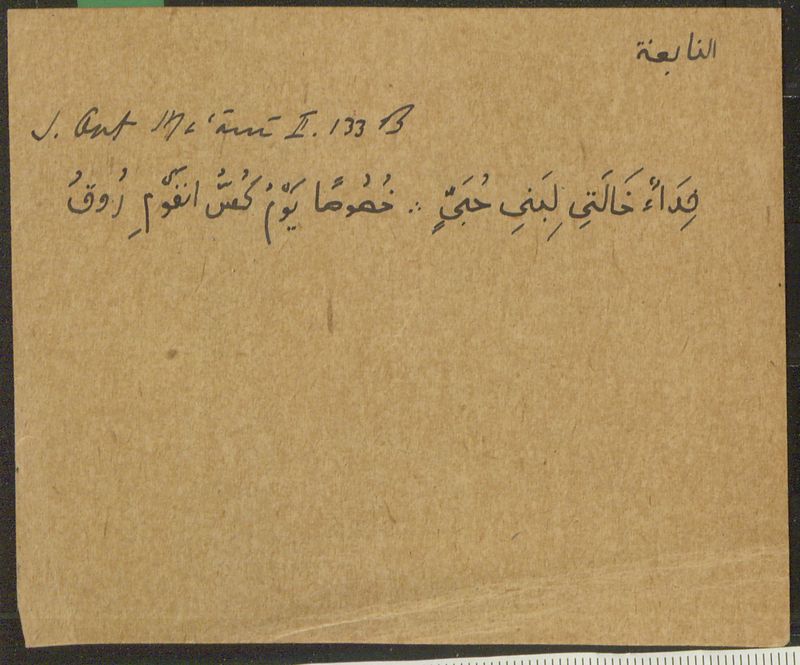 النابغة
J. Qut Ma‘ānī II. 133 B
فِدَاءٌ خَالَتِي لِبَنِي حُيَيٍّ ∴ خُصُوصًا يَوْمَ كُسُّ القَوْمِ رُوقُ